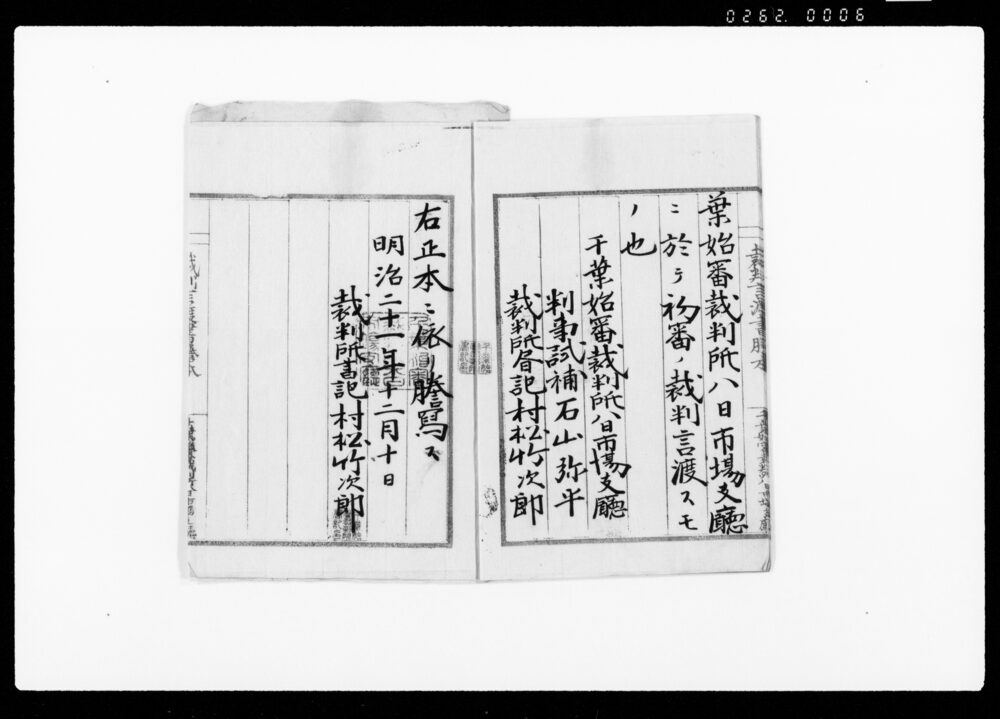 0262. 0006
葉始審裁判所八日市場支廳
ニ於テ初審ノ裁判言渡スモ
ノ也
千葉始審裁判所八日市場支廳
判事試補石山弥平
裁判所書記村松竹次郎
右正本ニ依リ謄寫ス
明治二十一年十二月十日
裁判所書記村松竹次郎